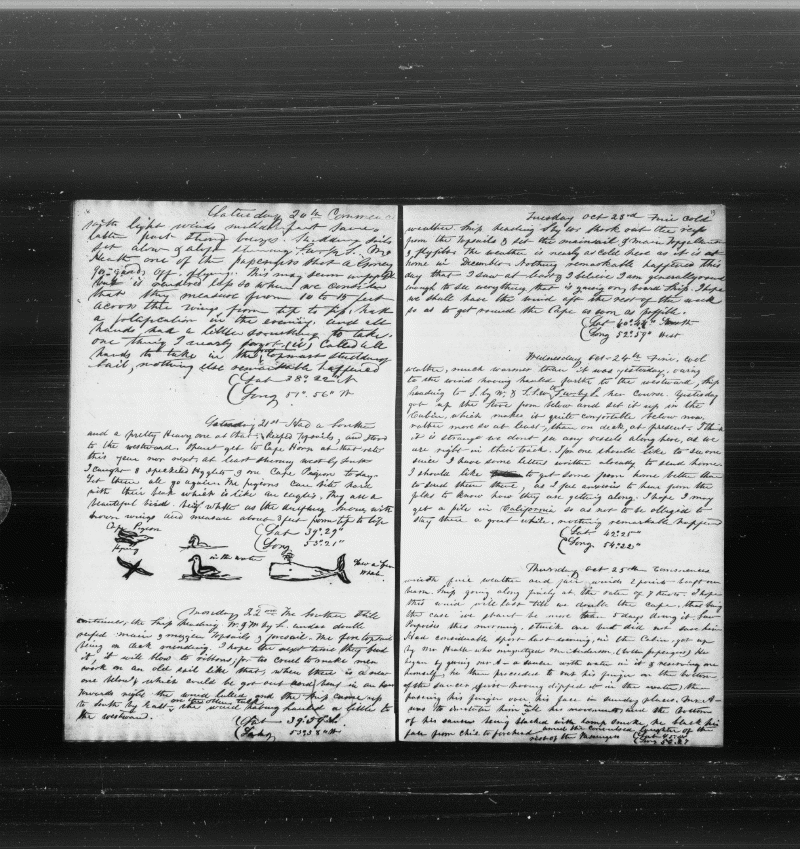 Saturday 20th Commences
with light winds mild & fast
latter part strong breezes. Studding sails
set alow & aloft
one of the passengers shot a
off flying. This may seem
is wondered less so when we consider
that they measure from 10 to 15 feet
across their wings, from tip to tip, had
a in the evening, and all
hands had a little something to take
one thing I nearly forgot (is) Called all
hands to take in the topmast studding
sail, nothing else remarkable happened
(Lat 38° 22"
(Long 51° 56" W
21st
and a pretty Heavy one at that: Topsails, and stood
to the westward. Shant get to Cape Horn at that rate
this year nor next, at least
I caught 3 speckled & one Cape Pigeon today.
Let them all go again. The pigeons can bite hard
with their beak which is like an eagles. They are a
beautiful bird white as the snow, with
brown wings and measure about 3 feet from tip to tip
Cape Pigeon (Lat 39° 29"
flying (Long 53° 21"
in the water
Whale
Monday 22nd The Souther Still
continues, the Ship Heading W. & W by S. under double
reefed main & mizzen topsails & foresail. The fore topsail
being on deck mending. I hope the next time they bend
it, it will blow to ribbons, for to make men
work on an old sail like that, when there is a new
one & which could be got out and bent in an hour
Towards night the wind lulled, and the ship came up
to South by East on the other tack, the wind having hauled a little to
the westward. (Lat 39° 59" S.
(Long 53° 38" W
Tuesday Oct 23rd Fine Cold
weather Ship heading Shook out the reefs
from the Topsails & set the mainsail & Main Topgallant
& flying jib. The weather is nearly as cold here as it is at
home in December. Nothing remarkable happened this
day that I saw at least, & I believe I am generally round
enough to see everything that is going on, board Ship. I hope
we shall have the wind aft the rest of the week
so as to get round the Cape as soon as possible.
(Lat 40° 44" South
(Long 52° 59" West
Wednesday Oct 24th Fine, cool
weather, much warmer than it was yesterday, owing
to the wind having hauled further to the westward, Ship
heading to S. by W. & her Course. Yesterday
got up the Stove from below and set it up in the
Cabin, which makes it quite comfortable below now,
rather more so at least, than on deck, at present. I think
it is strange we dont see any vessels along here, as we
are right in their track. I for one should like to see one
since I have some letters written already to send home.
I should like to get some from home better than
to send them there, as I feel anxious to hear from the
folks to know how they are getting along. I hope I may
get a pile in California so as not to be obliged to
stay there a great while. nothing remarkable happened
(Lat 42° 25"
(Long. 54° 22"
Thursday Oct 25th Commences
with fine weather and fair winds 2 points
beam. Ship going along finely at the rate of 8 knots. I hope
this wind will last till we double the Cape. this being
the case we shant be more than 5 days doing it. Saw
Porpoises this morning, struck one but did not save him
Had considerable sport last evening, in the Cabin, got up
by Mr Heath who magnetized Mr Anderson, (both passengers) He
began by giving Mr A— a saucer with water in it & reserving one
himself; he then proceeded to put his finger on the bottom
of the saucer (first having dipped it in the water) then
passing his finger over his face in sundry places. Mr A—
was to imitate him in all his movements, and the bottom
of his saucer being blacked with lamp smoke he black his
face from chin to forehead amid the convulsed laughter of the
rest of the Passengers